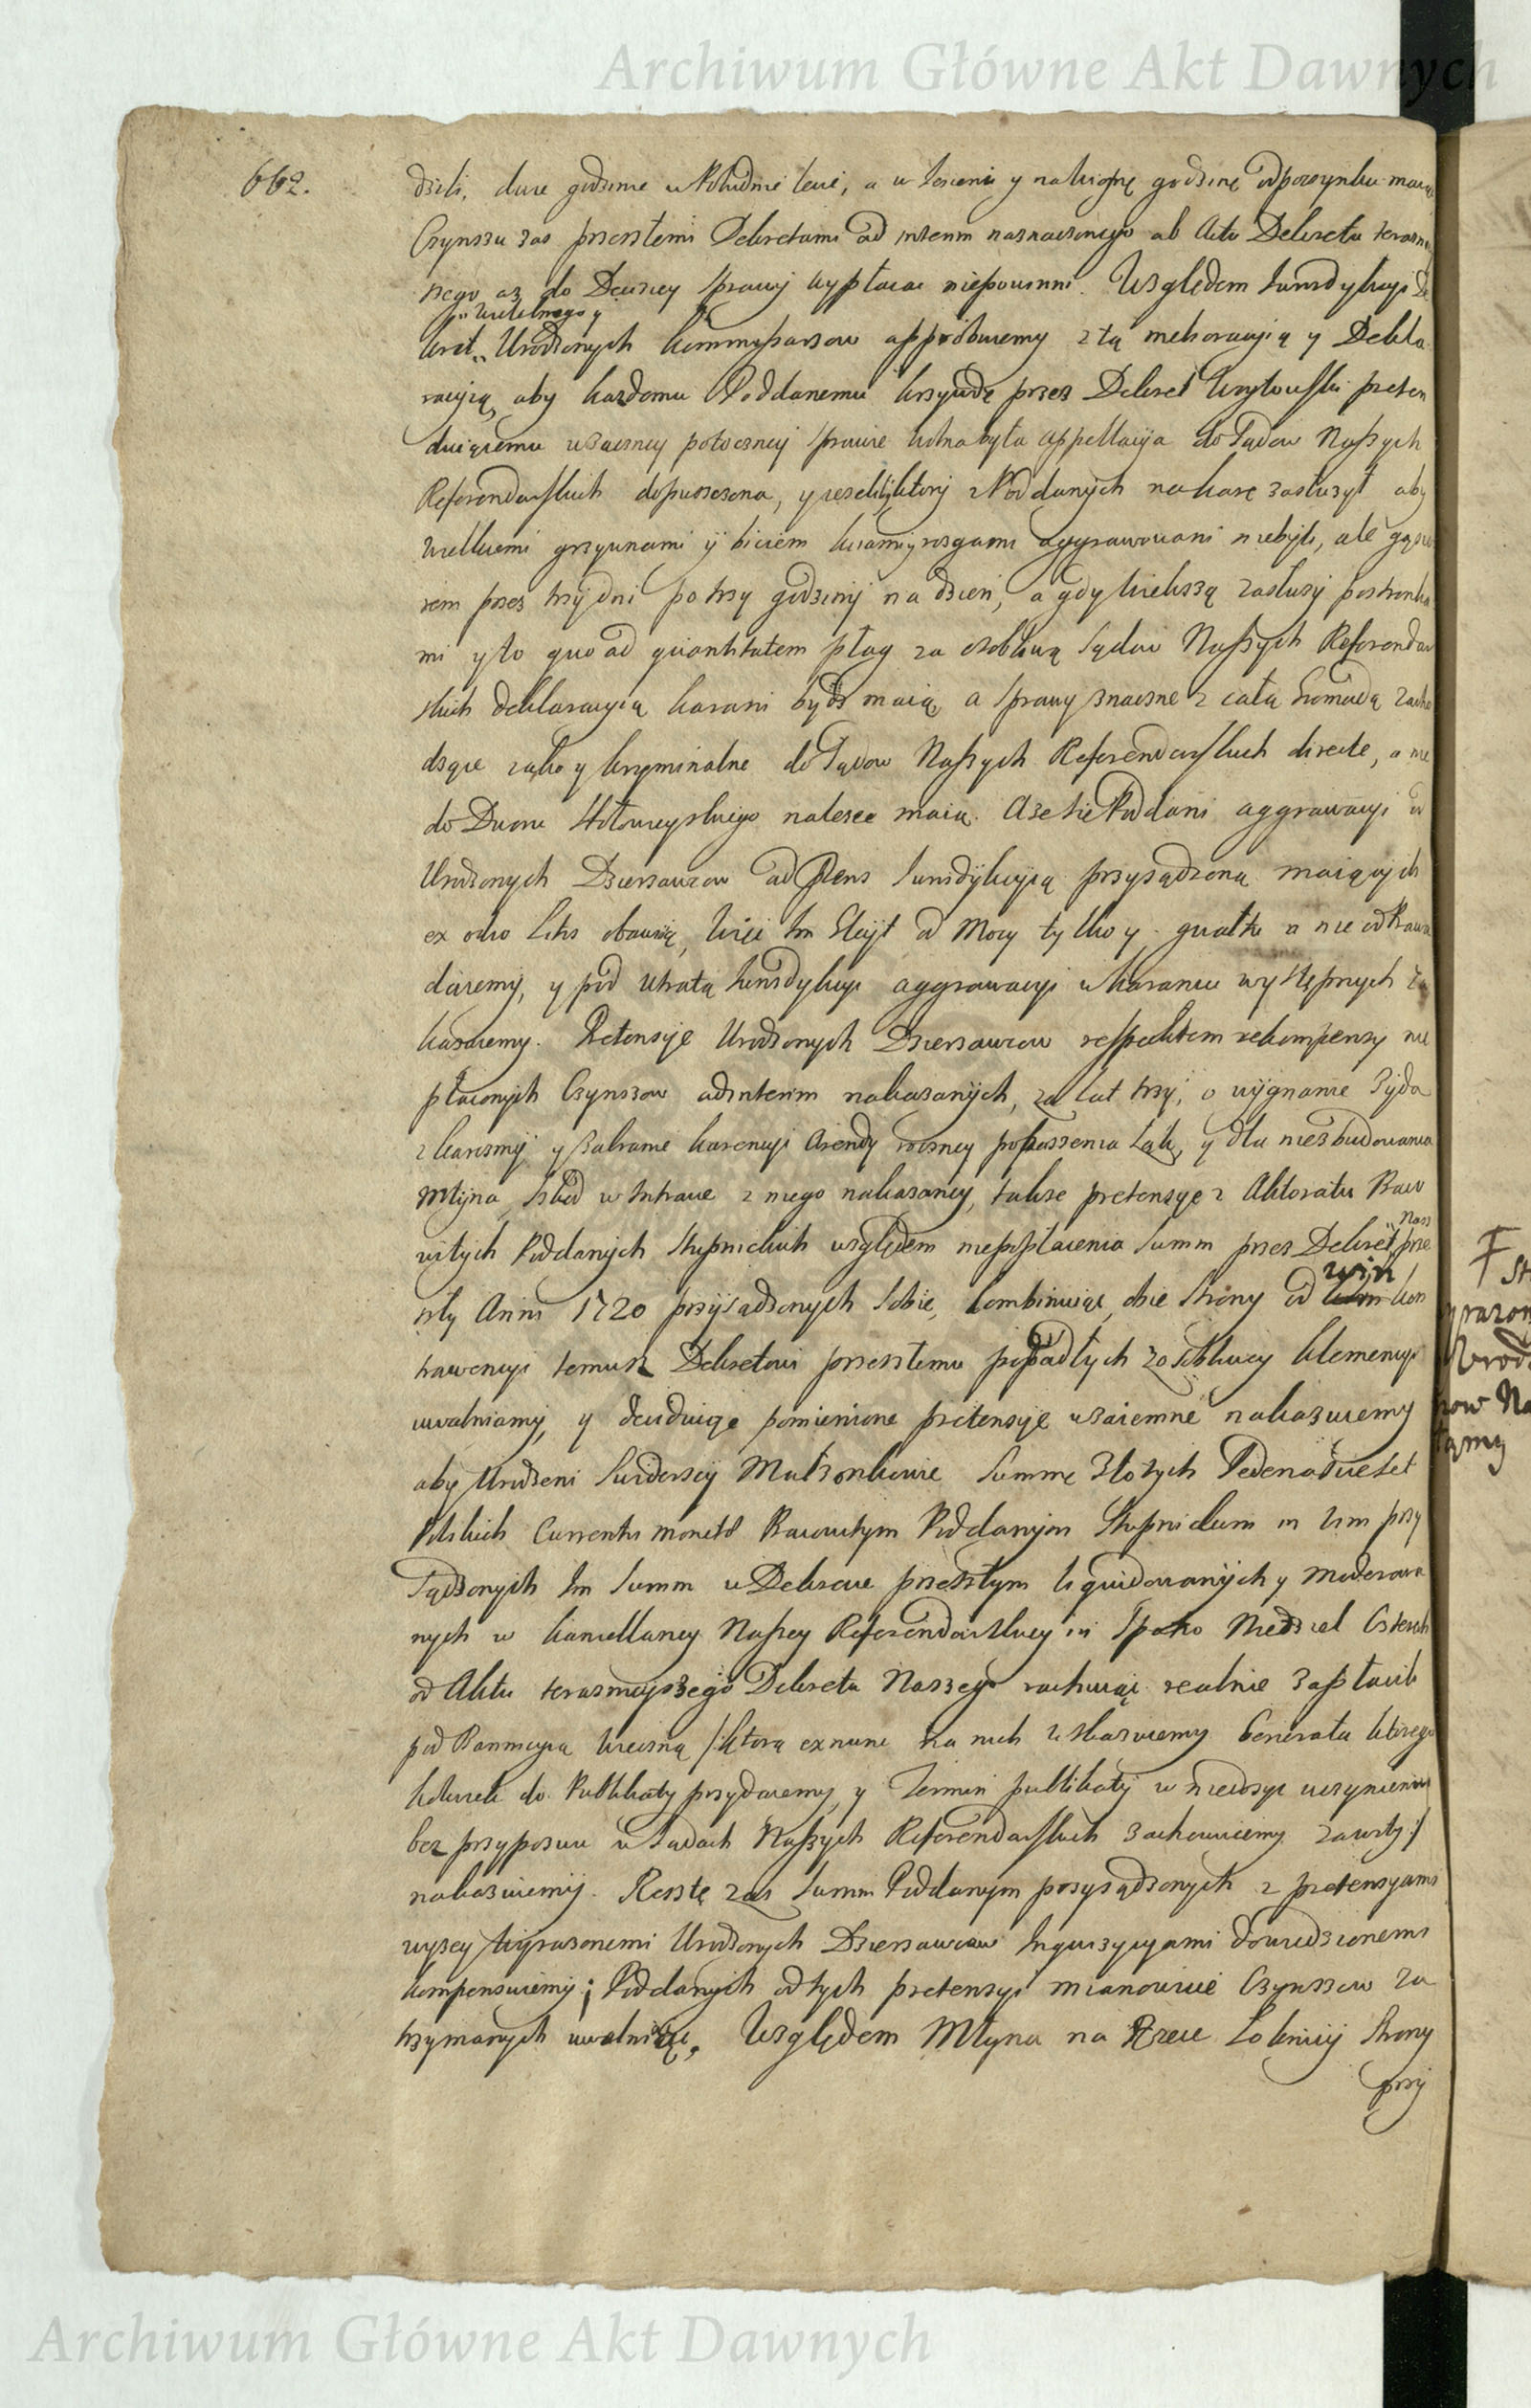 Archiwum Główne Akt Dawnych
662.
dzili, dwie godzinie w Południe lecie, a w Jesieni y na wiosnę godzinę odpoczynku maią
Czynszu zas przeszłemi Dekretami ad interim naznaczonego ab Actu Dekretu teraznieÿ
szego az do Decizey sprawy wypłacac niepowinni. Względem Iurisdykcyi De
Wielebnego y
kret Urodzonych kommissarzow approbuiemy z tą melioracyią y Dekla
racyią, aby kazdemu Poddanemu krzywdę przez Dekret preten
duiącemu wzaiemney potoczney sprawie wolna była appellacyia do Sądow Naszych
Referendarskich dopuszczona, y iezeliby ktory z Poddanych na karę zasłuzył aby
wielkiemi grzywnami y biciem rozgami aggrawowani niebyli, ale gąsio
rem przez trzy dni po trzy godziny na dzien, a gdy wiekszą zasłuzy postronka
mi y to quo ad quantitatem plag za osobliwą Sądow Naszych Referendar
skich deklaracyią karani bydz maią, a sprawy znaczne z całą Gromadą zacho
dzące iako y kryminalne do Sądow Naszych Referendarskich directe, a nie
do Dworu nalezec maią. A ze się Poddani aggrawacyi od
Urodzonych Dzierzawcow ad praesens Iurisdykcyią przysądzoną maiących
ex odio Litis obawią, więc Im Gleyt od Mocy tylko y gwałtu a nie od Prawa
daiemy, y pod utratą Iurisdykcyi aggrawacyi w karaniu występnych za
kazuiemy. Pretensye Urodzonych Dzierzawcow respektem rekompensy nie
płaconych Czynszow ad interim nakazanych, za lat trzy, o wygnanie Zyda
z karczmy y zabranie Arendy roczney pokoszenia Łąk, y dla niezbudowania
Młyna, szkod w Intracie z niego nakazaney, takze pretensye z Aktoratu Praco
witych Poddanych Stupnickich względem niepopłacenia Summ przez Dekret Nasz prze
szły Anni 1720 przysądzonych sobie, kombinuiąc obie strony od win kon
trawencyi temusz Dekretowi przeszłemu popadłych z osobliwey klemencyi
uwalniamy, y decyduiąc pomienione pretensye wzaiemne nakazuiemy
aby Urodzeni Małzonkowie Summę Złotych Jedenascieset
Polskich Currentis monetae Pracowitym Poddanym Stupnickim in vim przy
sądzonych Im Summ w Dekrecie przeszłym likwidowanych y moderowa
nych w kancellaryi Naszey Referendarskiey in Spatio Niedziel Czterech
od Aktu teraznieyszego Dekretu Naszego rachuiąc realnie zapłacili
pod Bannicyią wieczną /:którą ex nunc na nich wskazuiemy Generała ktorego
kolwiek do Publikaty przydaiemy y Termin publikaty w niedosyc uczynieniu
bez przypozwu w Sądach Naszych Referendarskich zachowuiemy zawity:/
nakazuiemy. Resztę zas Summ Poddanym przysądzonych z pretensyami
wyzey wyrazonemi Urodzonych Dzierzawcow Inquizycyiami dowiedzionemi
kompensuiemy; Poddanych od tych pretensyi mianowicie Czynszow za
trzymanych uwalniaiąc. Względem Młyna na Rzece strony
przy
Archiwum Główne Akt Dawnych